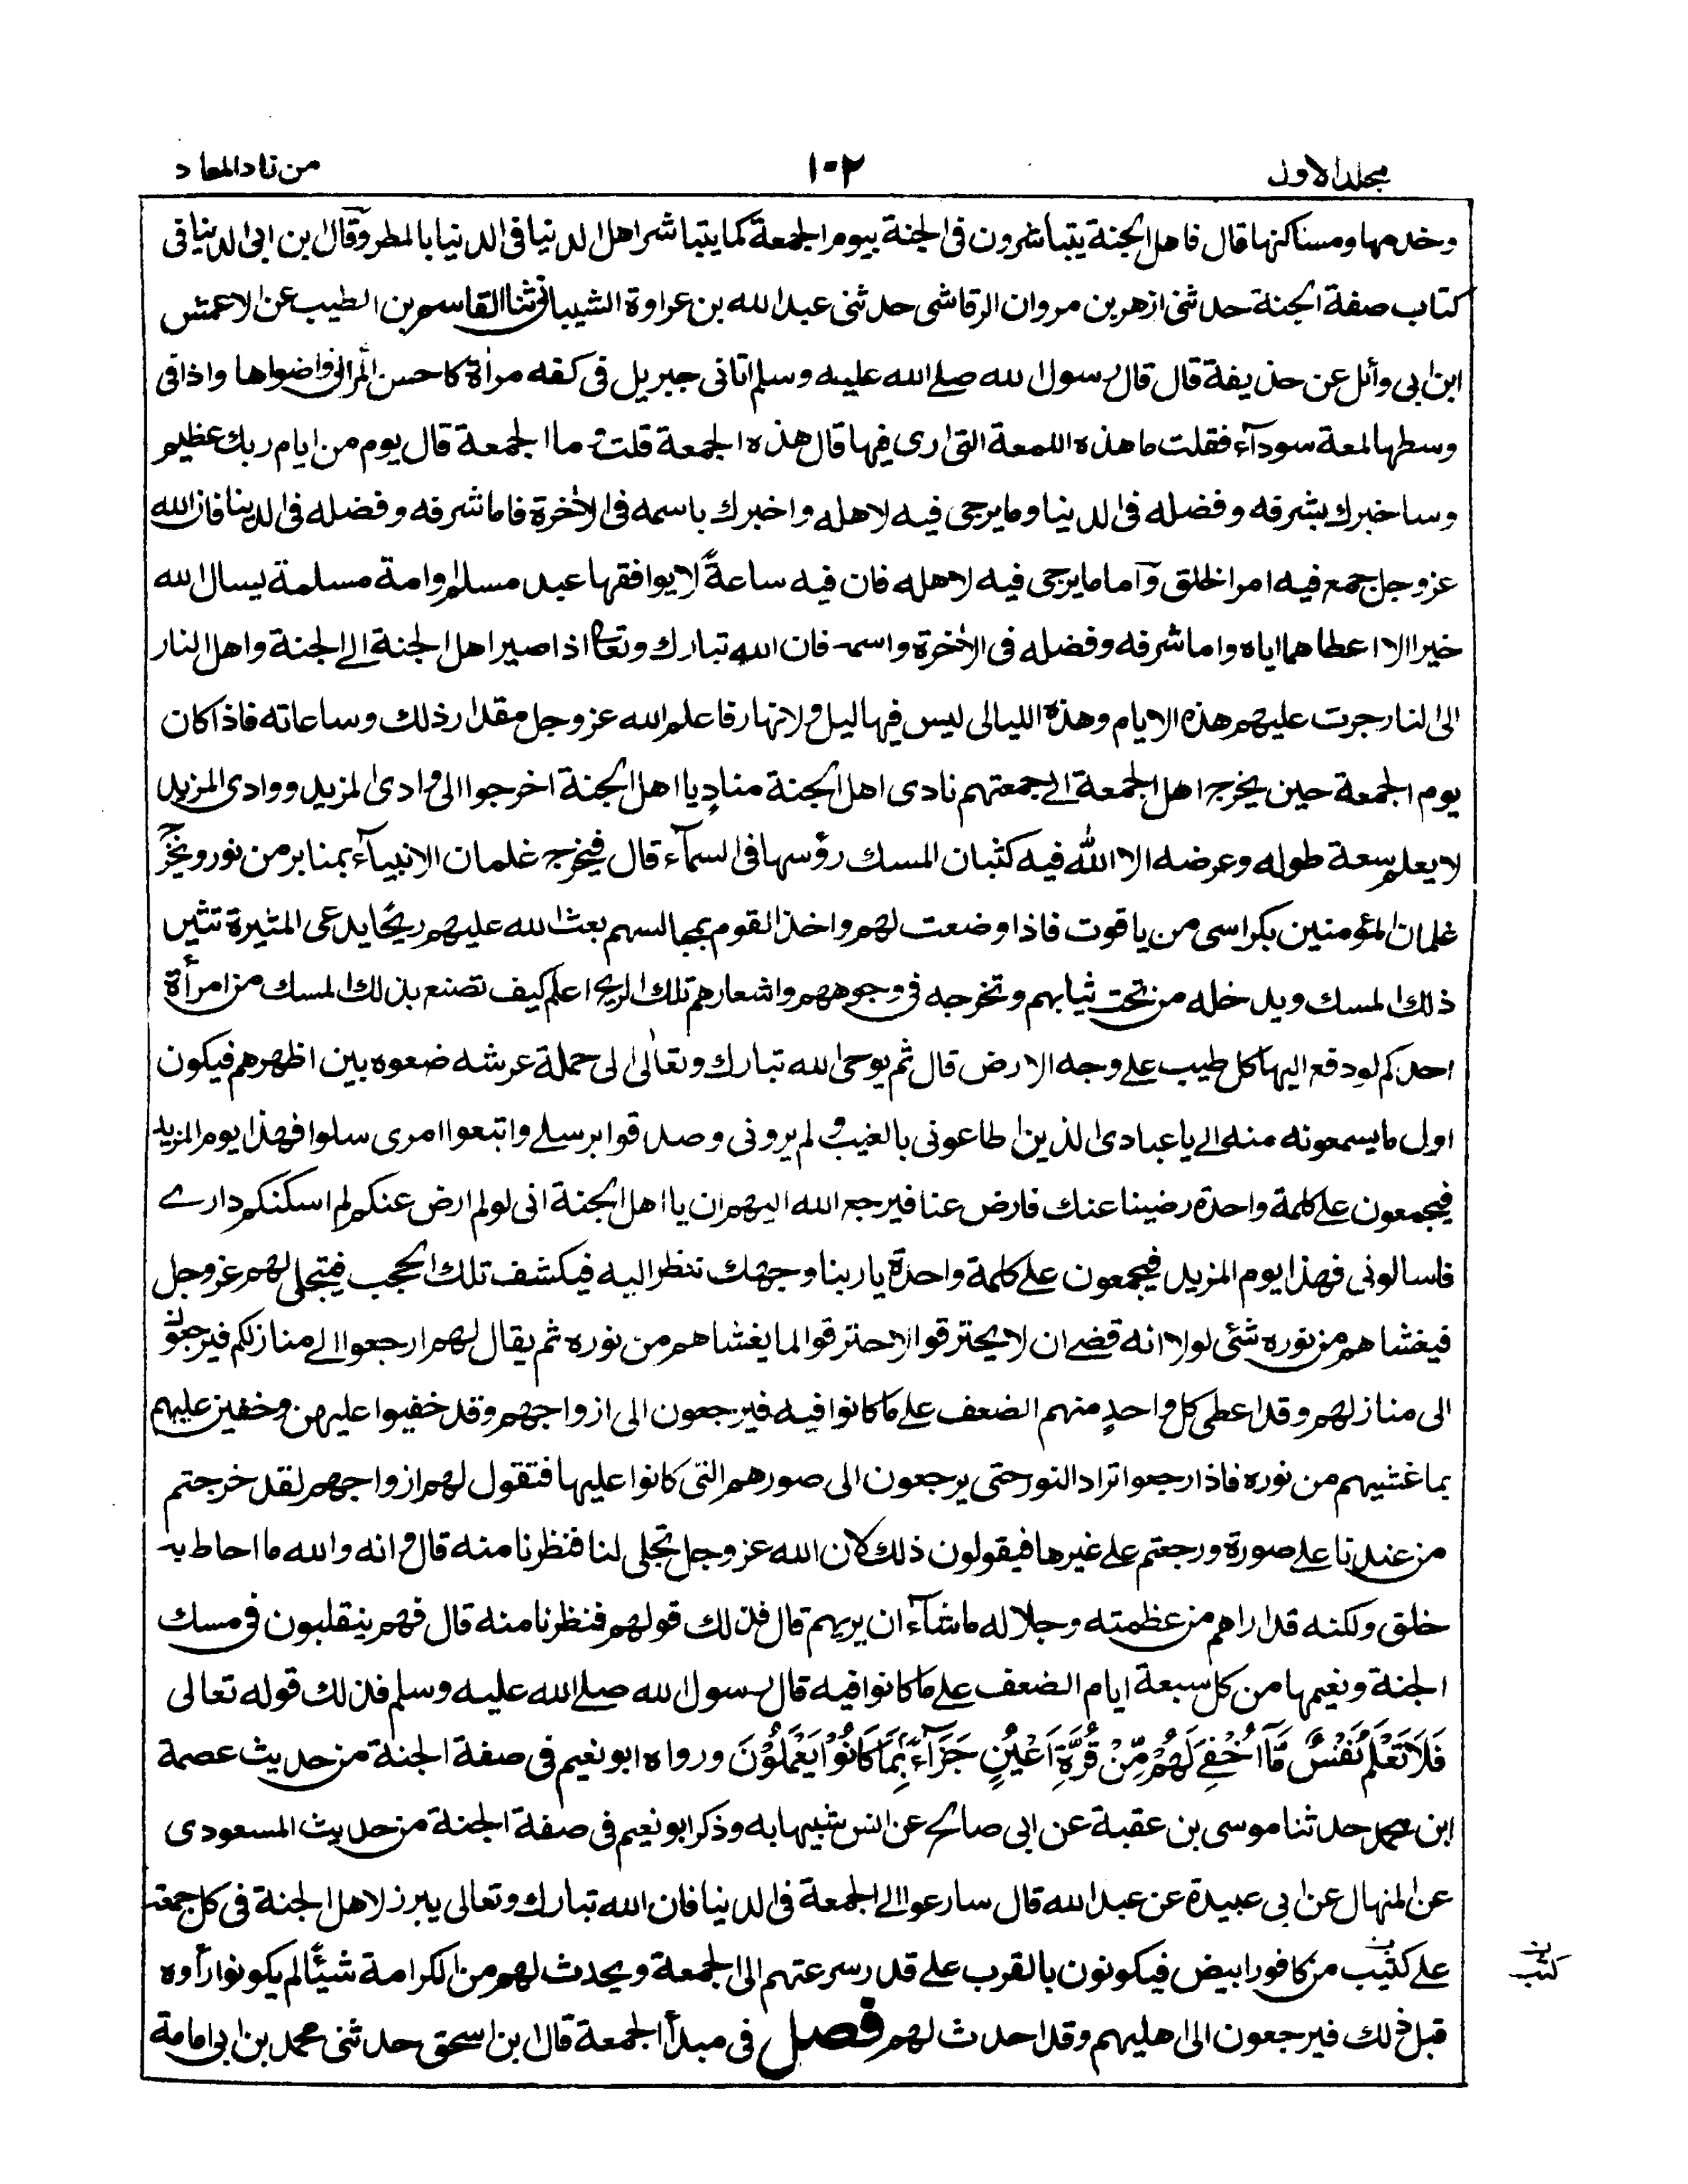 مجلد الاول
١٠٢
من زاد المعاد
وخدمها ومساكنها قال فاهل الجنة يتباشرون فى الجنة بيوم الجمعة كما يتباشر اهل الدنيا فى الدنيا بالمطر وقال ابن ابى الدنيا فى
كتاب صفة الجنة حدثنى ازهر بن مروان الرقاشى حدثنى عبد الله بن عراوة الشيبانى ثنا القاسم بن الطيب عن الاعمش
ابن ابى وائل عن حذيفة قال قال رسول الله صلے الله عليه وسلم اتانى جبريل فى كفه مرأة كاحسن المرائى واضواها واذا فى
وسطها لمعة سوداء فقلت ما هذه اللمعة التى ارى فيها قال هذه الجمعة قلت ما الجمعة قال يوم من ايام ربك عظيم
وساخبرك بشرفه وفضله فى الدنيا وما يرجى فيه لاهله واخبرك باسمه فى الأخرة فاما شرفه وفضله فى الدنيا فان الله
عز وجل جمع فيه امر الخلق وأما ما يرجى فيه لاهله فان فيه ساعةً لا يوافقها عبد مسلم او امة مسلمة يسال الله
خيرا الا اعطاهما اياه واما شرفه وفضله فى الأخرة واسمه فان الله تبارك وتعا اذا صير اهل الجنة الے الجنة واهل النار
الى النار جرت عليهم هذه الايام وهذه الليالى ليس فيها ليل ولا نهار فاعلم الله عز وجل مقدار ذلك وساعاته فاذا كان
يوم الجمعة حين يخرج اهل الجمعة الے جمعتهم نادى اهل الجنة منادٍ يا اهل الجنة اخرجوا الى وادى المزيد ووادى المزيد
لا يعلم سعة طوله وعرضه الا الله فيه كثبان المسك رؤسها فى السماء قال فيخرج غلمان الانبياء بمنابر من نور ويخرج
غلمان المؤمنين بكراسى من ياقوت فاذا وضعت لهم واخذ القوم مجالسهم بعث الله عليهم ريحًا يدعى المثيرة تثير
ذلك المسك ويدخله من تحت ثيابهم وتخرجه فى وجوههم واشعارهم تلك الريح اعلم كيف تصنع بذلك المسك من امرأة
احدكم لو دفع اليها كل طيب علے وجه الارض قال ثم يوحى الله تبارك وتعالى الى حملة عرشه ضعوه بين اظهرهم فيكون
اول ما يسمعونه منه الے يا عبادى الذين اطاعونى بالغيب ولم يرونى وصدقوا برسلے واتبعوا امرى سلوا فهذا يوم المزيد
فيجمعون علے كلمة واحدة رضينا عنك فارض عنا فيرجع الله اليهم ان يا اهل الجنة انى لو لم ارض عنكم لم اسكنكم دارے
فاسالونى فهذا يوم المزيد فيجمعون علے كلمة واحدة يا ربنا وجهك ننظر اليه فيكشف تلك الحجب فيتجلى لهم عز وجل
فيغشاهم من نوره شئ لولا انه قضے ان لا يحترقوا لاحترقوا لما يغشاهم من نوره ثم يقال لهم ارجعوا الے منازلكم فيرجعون
الى منازلهم وقد اعطى كل واحدٍ منهم الضعف علے ما كانوا فيه فيرجعون الى ازواجهم وقد خفيوا عليهن وخفين عليهم
بما غشيهم من نوره فاذا رجعوا تراد النور حتى يرجعون الى صورهم التى كانوا عليها فتقول لهم ازواجهم لقد خرجتم
من عندنا علے صورة ورجعتم علے غيرها فيقولون ذلك لان الله عز وجل تجلى لنا فنظرنا منه قال وانه والله ما احاط به
خلق ولكنه قد اراهم من عظمته وجلاله ما شاء ان يريهم قال فذلك قولهم فنظرنا منه قال فهم ينقلبون فى مسك
الجنة ونعيمها من كل سبعة ايام الضعف علے ما كانوا فيه قال رسول الله صلے الله عليه وسلم فذلك قوله تعالى
فَلَا تَعْلَمُ نَفْسٌ مَّآ اُخْفِےَ لَهُمْ مِّنْ قُرَّةِ اَعْيُنٍ جَزَآءً بِمَا كَانُوْا يَعْمَلُوْنَ ورواه ابو نعيم فى صفة الجنة من حديث عصمة
ابن محمد حدثنا موسى بن عقبة عن ابى صالح عن انس شبيها به وذكر ابو نعيم فى صفة الجنة من حديث المسعودى
عن المنهال عن ابى عبيدة عن عبد الله قال سارعوا الے الجمعة فى الدنيا فان الله تبارك وتعالى يبرز لاهل الجنة فى كل جمعة
علے كثيب من كافور ابيض فيكونون بالقرب علے قدر سرعتهم الى الجمعة ويحدث لهم من الكرامة شيئًا لم يكونوا رأوه
قبل ذلك فيرجعون الى اهليهم وقد احدث لهم فصل فى مبدأ الجمعة قال ابن اسحق حدثنى محمد بن ابى امامة